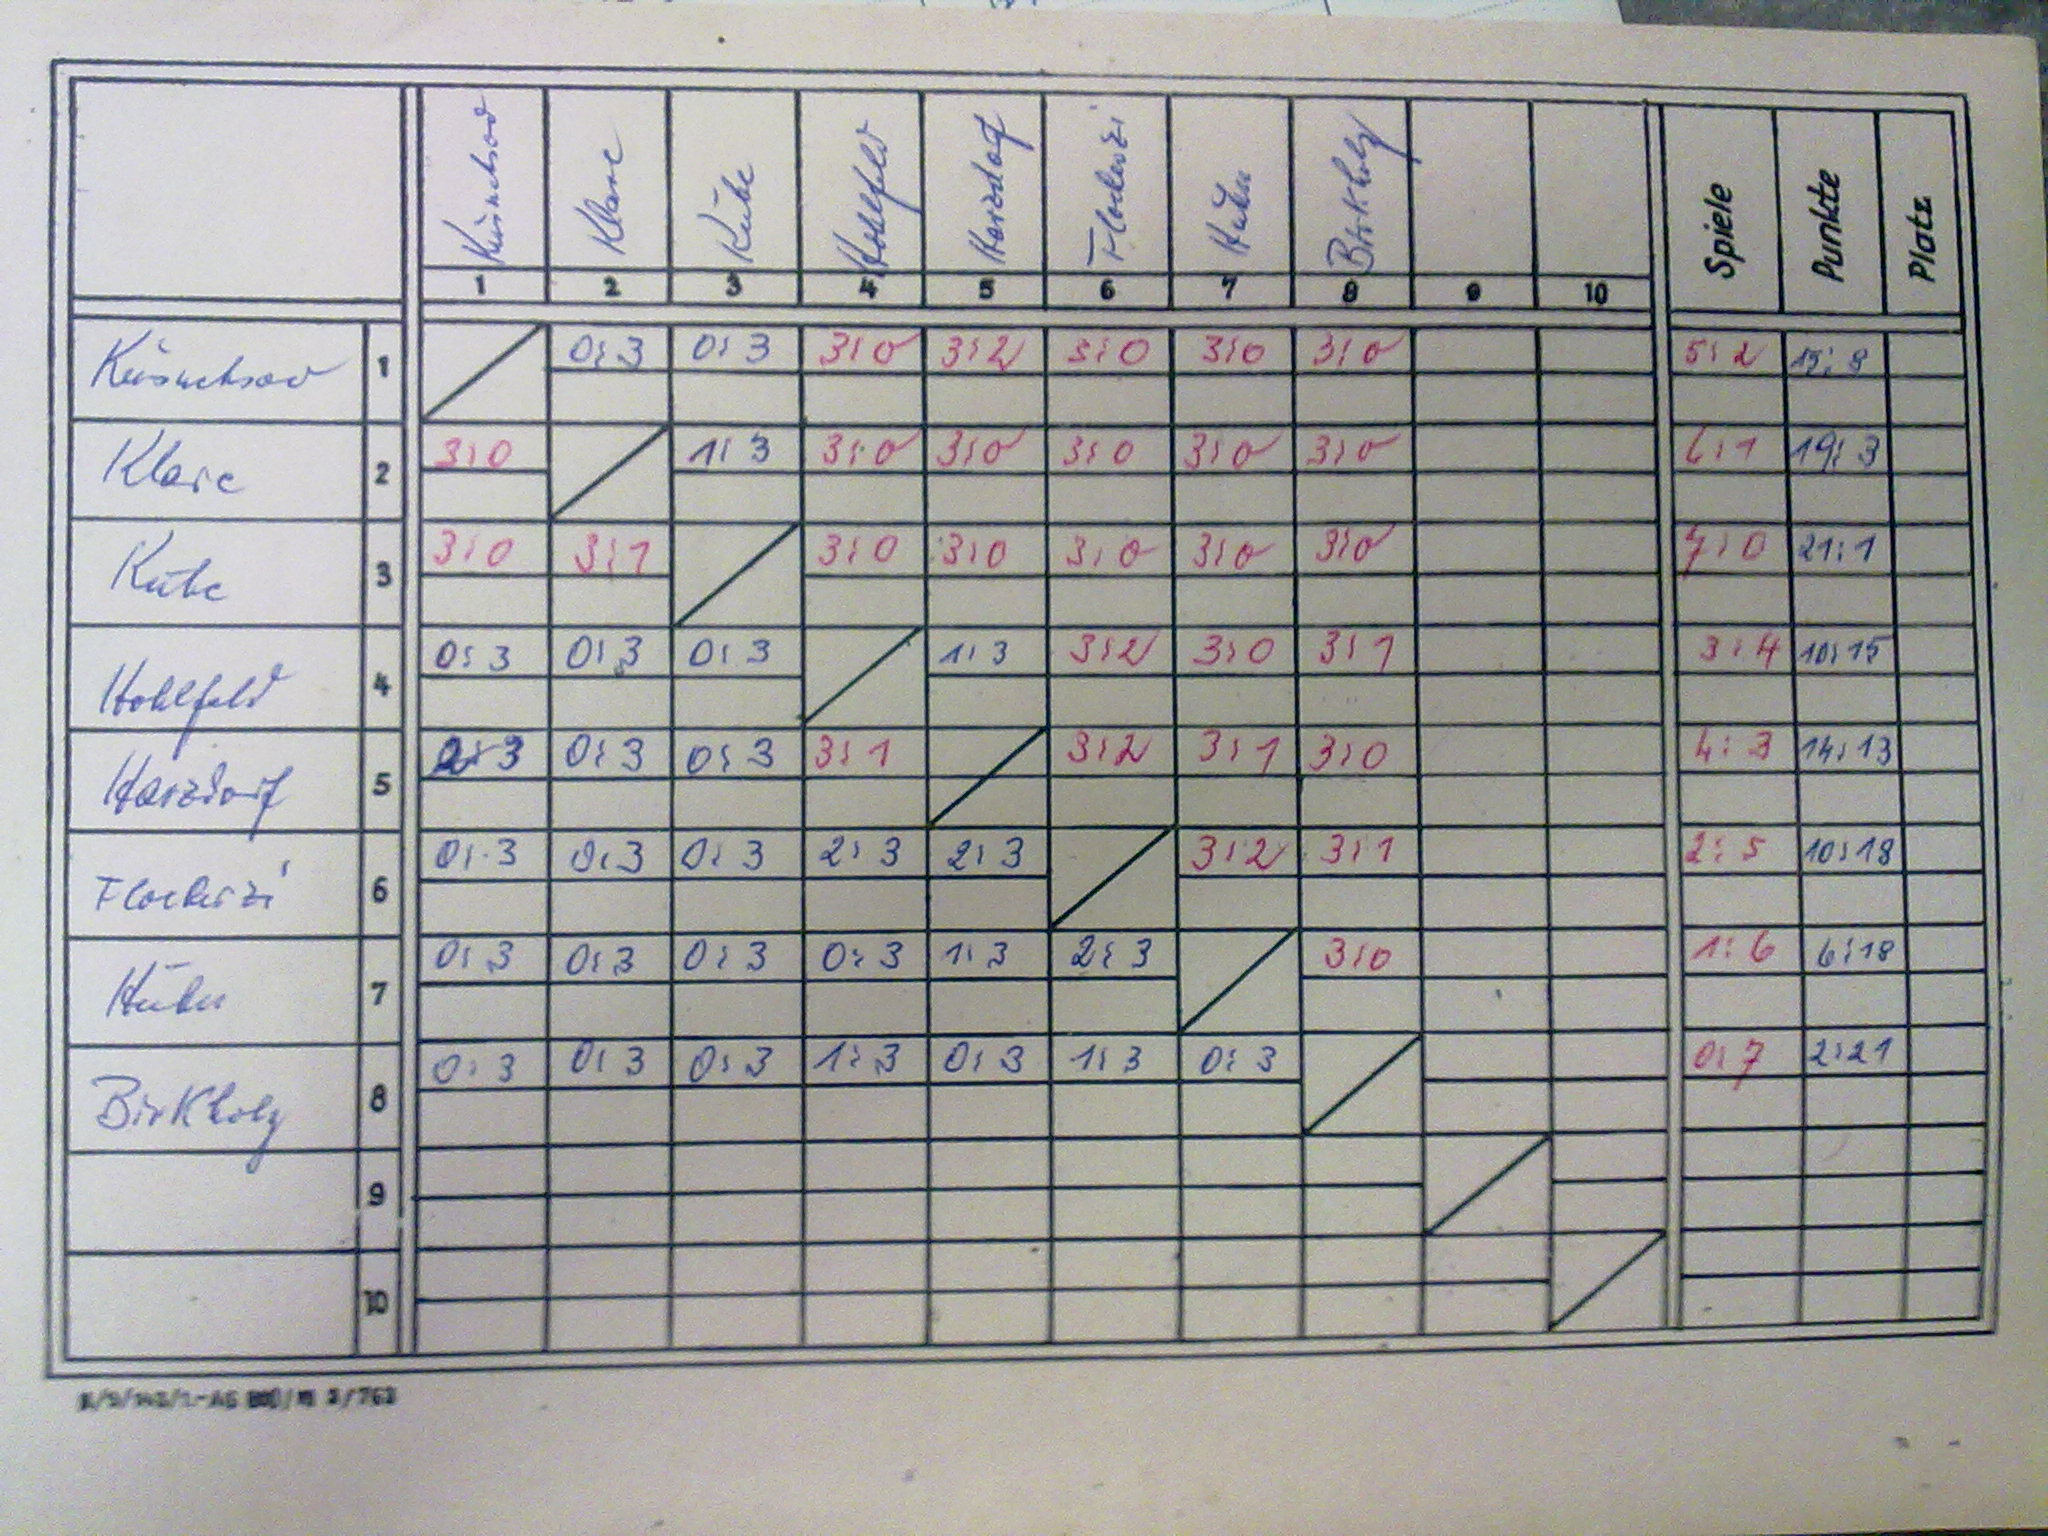 Klare Kube Hohlfeld Harzdorf Flockerzi Huhn Birkholz
1 2 3 4 5 6 7 8 9 10 Spiele Punkte Platz
1 0:3 0:3 3:0 3:2 3:0 3:0 3:0 5:2 15:8
Klare 2 3:0 1:3 3:0 3:0 3:0 3:0 3:0 6:1 19:3
Kube 3 3:0 3:1 3:0 3:0 3:0 3:0 3:0 7:0 21:1
Hohlfeld 4 0:3 0:3 0:3 1:3 3:2 3:0 3:1 3:4 10:15
Harzdorf 5 2:3 0:3 0:3 3:1 3:2 3:1 3:0 4:3 14:13
Flockerzi 6 0:3 0:3 0:3 2:3 2:3 3:2 3:1 2:5 10:18
Huhn 7 0:3 0:3 0:3 0:3 1:3 2:3 3:0 1:6 6:18
Birkholz 8 0:3 0:3 0:3 1:3 0:3 1:3 0:3 0:7 2:21
9
10